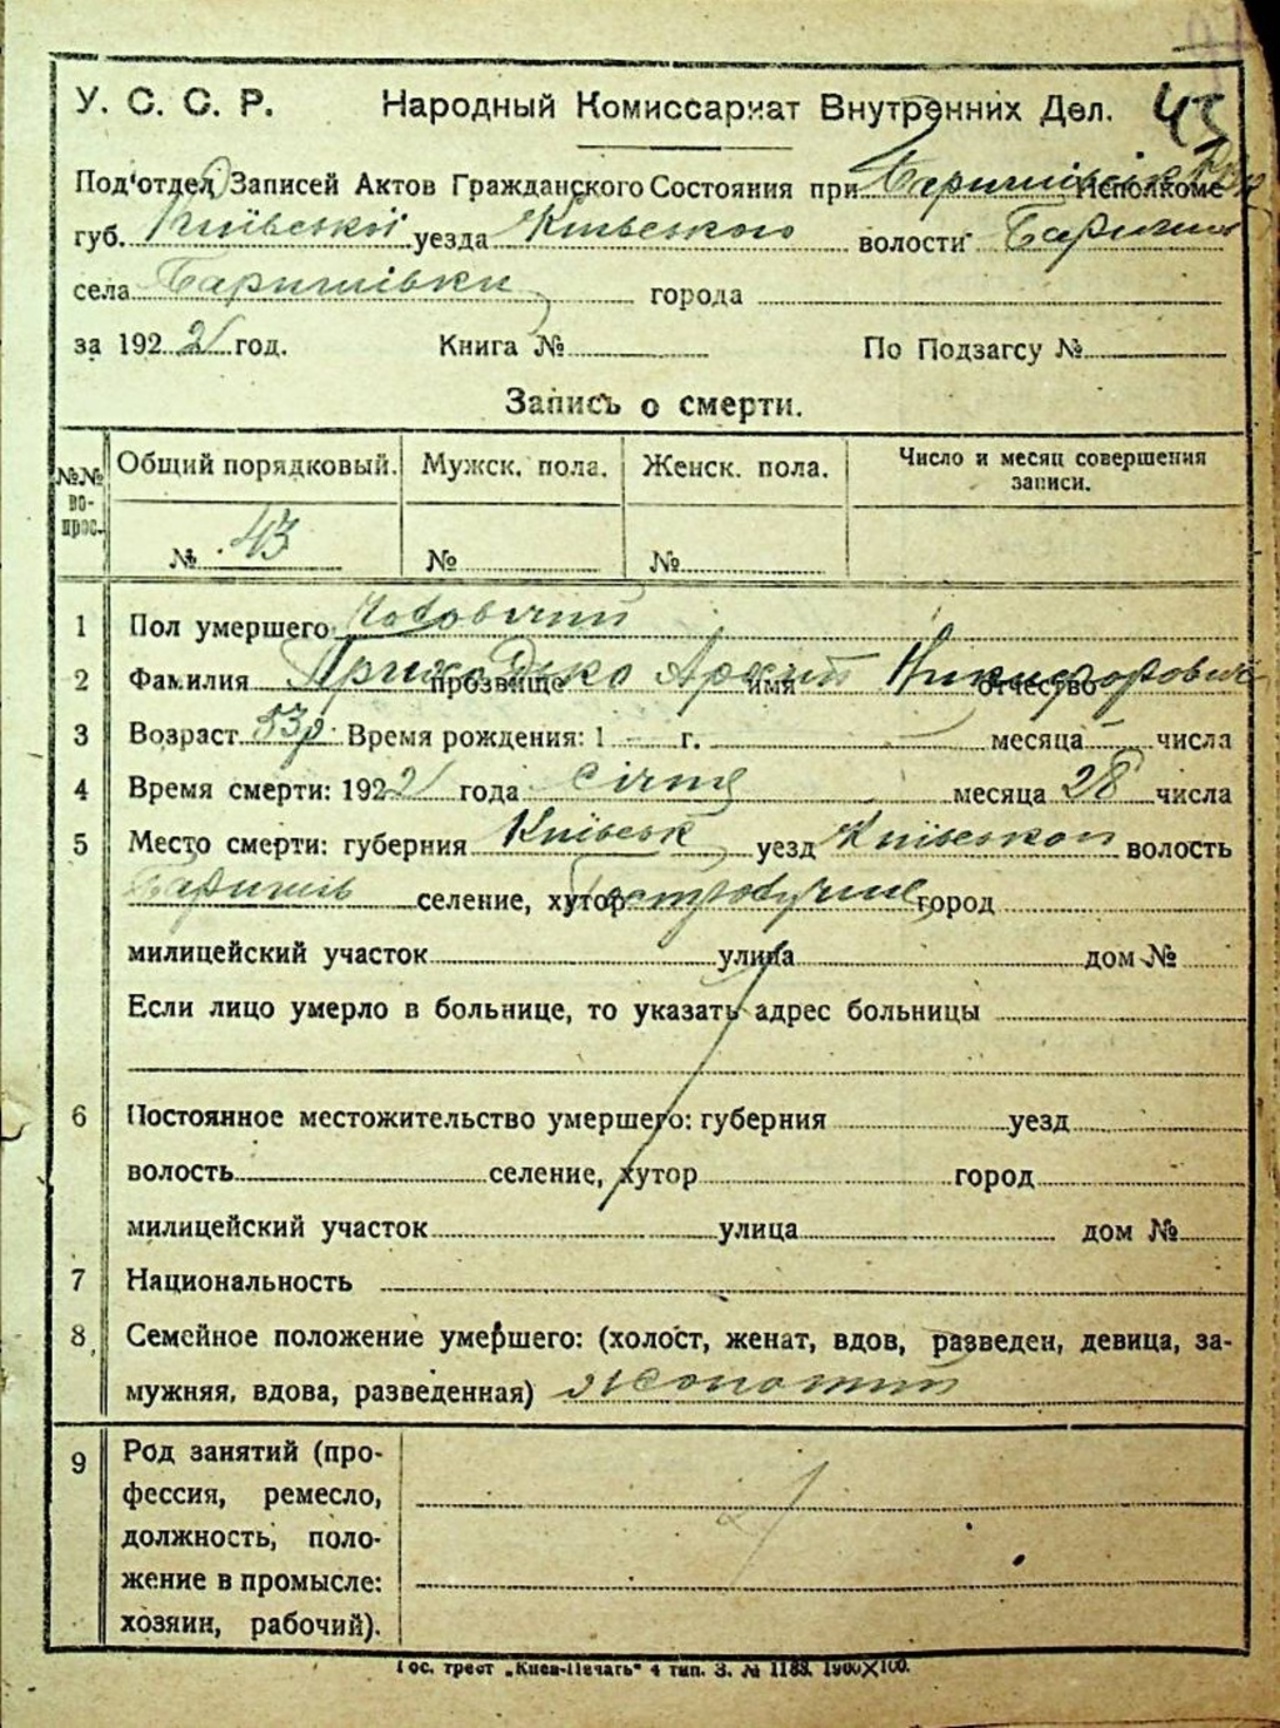 У. С. С. Р. Народный Комиссариат Внутренних Дел. 43
Под'отдел Записей Актов Гражданского Состояния при Исполкоме
губ. Київської уезда Київського волости Баришів
села Баришівки города
за 1922 год. Книга № По Подзагсу №
Запись о смерти.
№№ вопрос. Общий порядковый. Мужск. пола. Женск. пола. Число и месяц совершения записи.
№ 43 № №
1 Пол умершего Чоловичий
2 Фамилия прозвище имя отчество Приходько Архип Никифорович
3 Возраст 53 р. Время рождения: 1 г. месяца числа
4 Время смерти: 1922 года січня месяца 28 числа
5 Место смерти: губерния Київськ уезд Київського волость
Баришів селение, хутор город
милицейский участок улица дом №
Если лицо умерло в больнице, то указать адрес больницы
6 Постоянное местожительство умершего: губерния уезд
волость селение, хутор город
милицейский участок улица дом №
7 Национальность
8 Семейное положение умершего: (холост, женат, вдов, разведен, девица, за-
мужняя, вдова, разведенная) жонатий
9 Род занятий (про-
фессия, ремесло,
должность, поло-
жение в промысле:
хозяин, рабочий).
Гос. трест „Киев-Печать" 4 тип. З. № 1188. 1900×100.